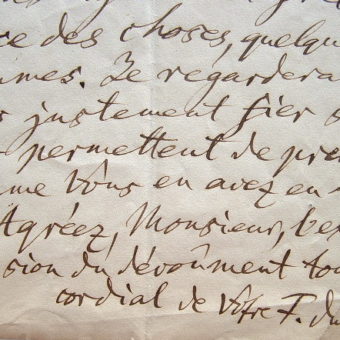 ce des choses, quelqu
umes. Je regardera
justement fier
permettent de pre
me Vous en avez en
Agréez, Monsieur, l'ex
sion du dévoûment tou
cordial de Votre F. du